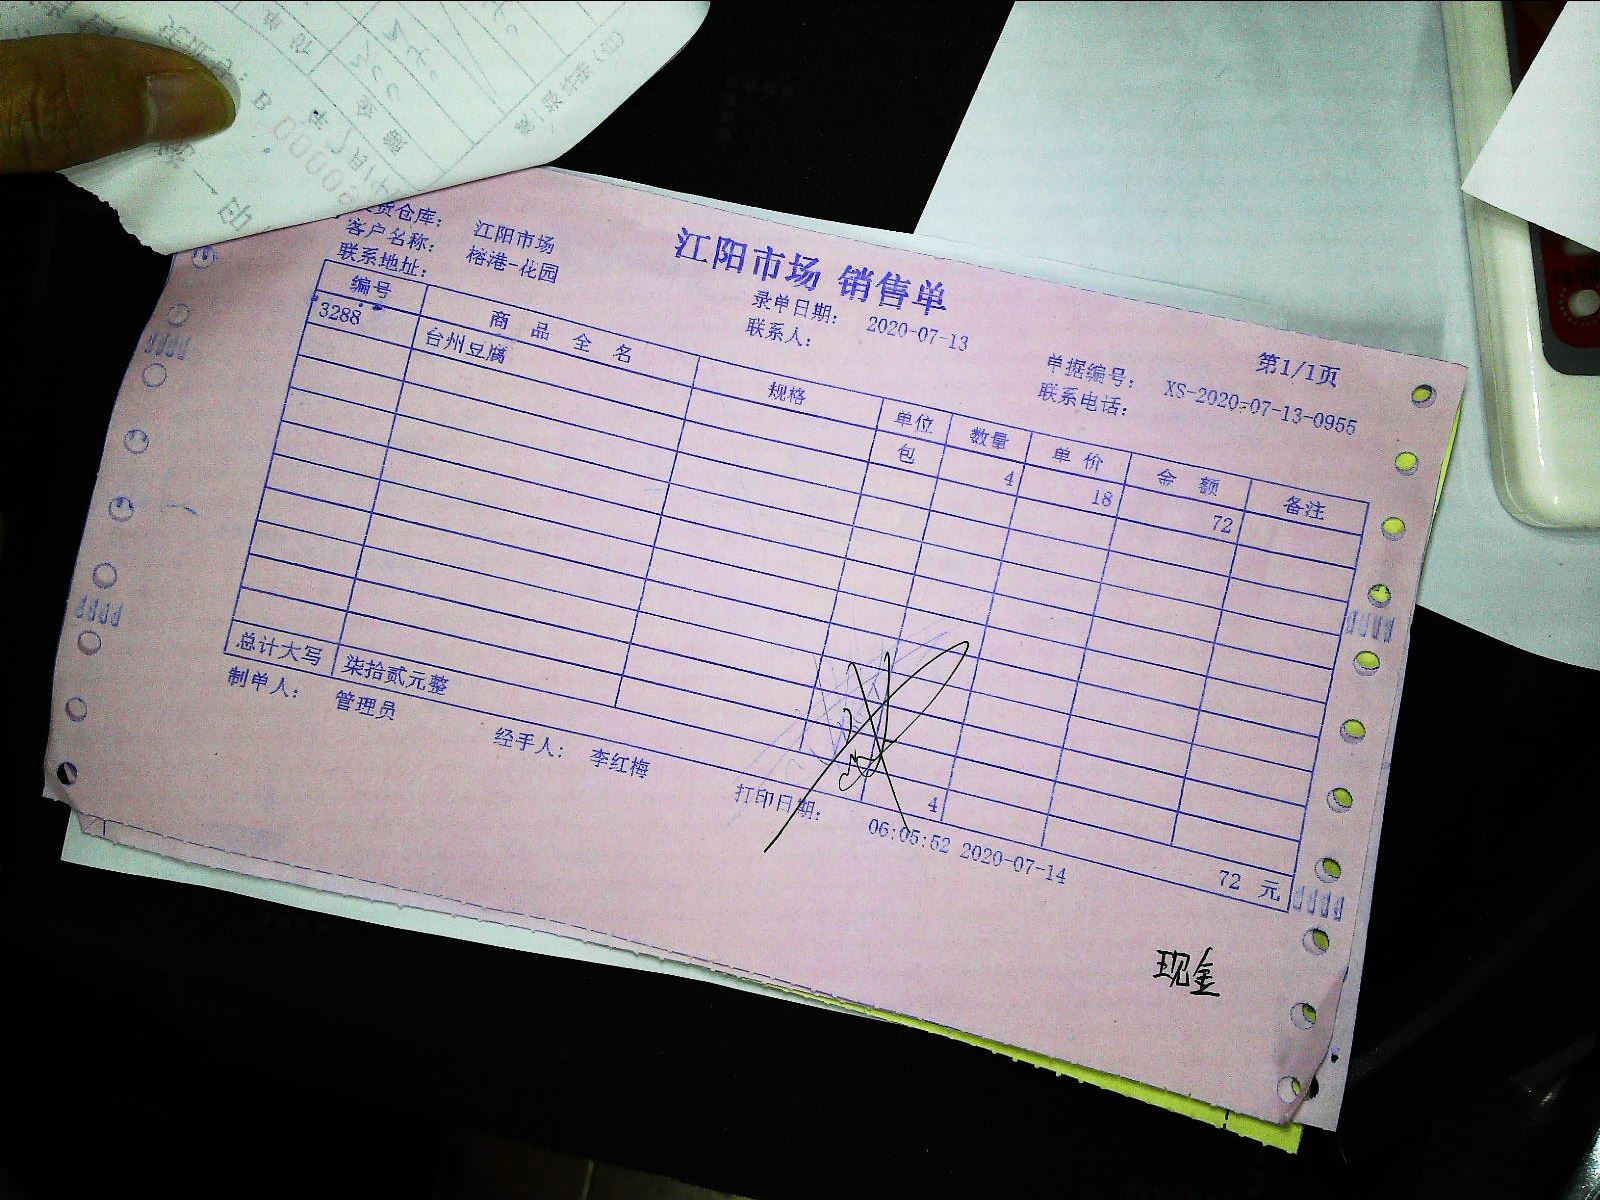 江阳市场 销售单
货仓库: 江阳市场
客户名称: 榕港-花园
联系地址:
录单日期: 2020-07-13
联系人:
第1/1页
单据编号: XS-2020-07-13-0955
联系电话:
编号 商品全名 规格 单位 数量 单价 金额 备注
3288 台州豆腐 包 4 18 72
总计大写 柒拾贰元整 4 72 元
制单人: 管理员 经手人: 李红梅 打印日期: 06:05:52 2020-07-14
现金